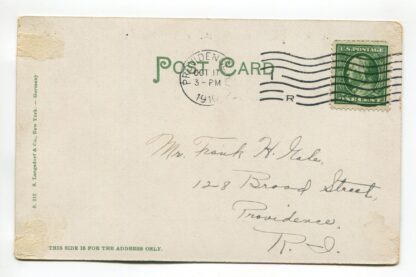 POST CARD
PROVIDENCE
OCT 17
3-PM
1910
R
U.S. POSTAGE
ONE CENT
S. 512 S. Langsdorf & Co., New York. — Germany
Mr. Frank H. Hale,
128 Broad Street,
Providence,
R. I.
THIS SIDE IS FOR THE ADDRESS ONLY.